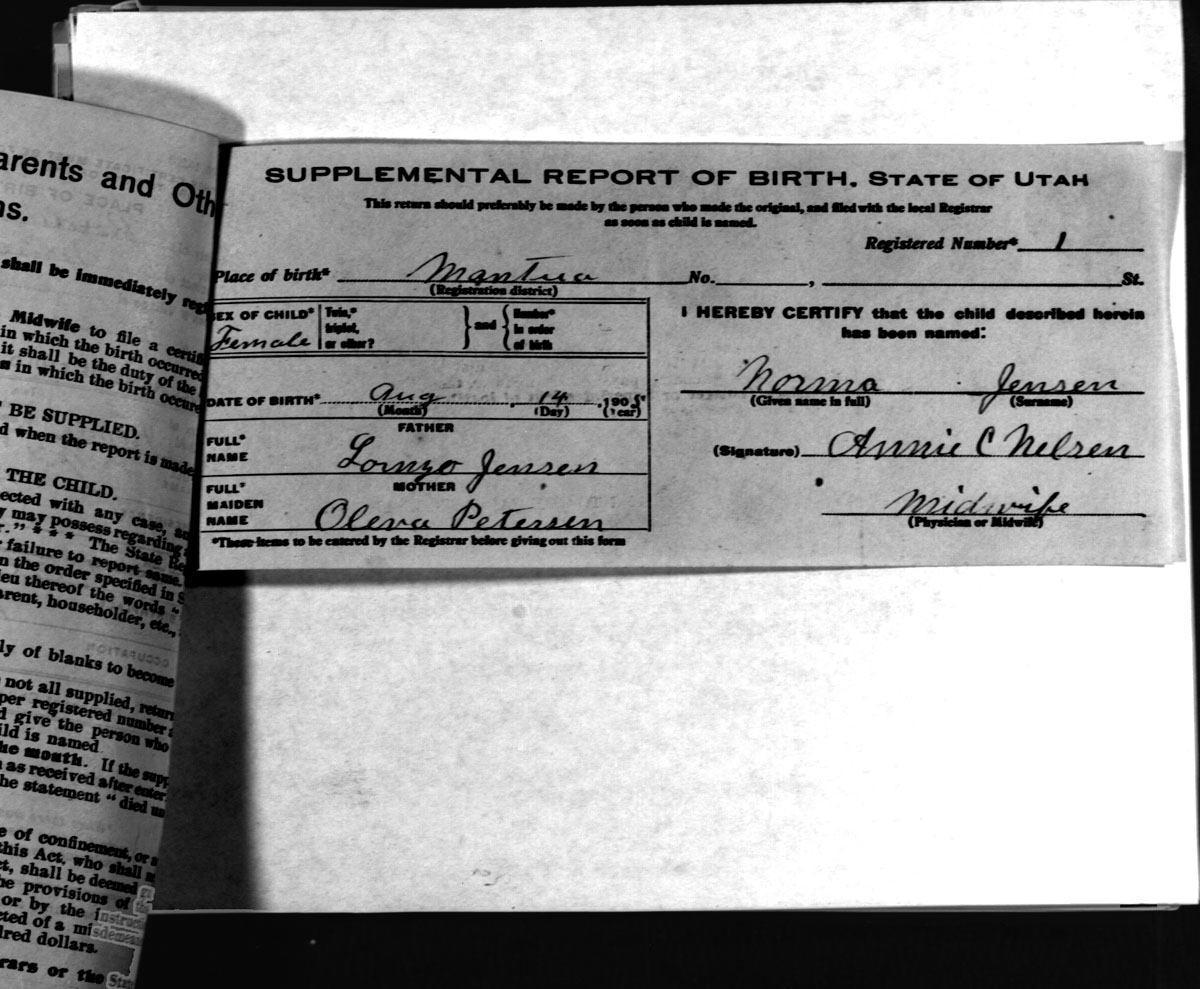 arents and Oth
ns.
shall be immediately regi
Midwife to file a certifi
in which the birth occurred
it shall be the duty of the
in which the birth occure
BE SUPPLIED.
d when the report is made
THE CHILD.
ected with any case, an
y may possess regarding
." * * * The State Re
failure to report same
n the order specified in S
ieu thereof the words "
arent, householder, etc.,
ly of blanks to become
not all supplied, return
per registered number
d give the person who
ild is named
he month. If the supp
as received after enter
he statement " died un
e of confinement, or
this Act, who shall
ct, shall be deemed
he provisions of
or by the Instruc
cted of a misdemean
dred dollars.
rars or the State
SUPPLEMENTAL REPORT OF BIRTH. STATE OF UTAH
This return should preferably be made by the person who made the original, and filed with the local Registrar
as soon as child is named.
Registered Number* 1
Place of birth* Mantua No. , St.
(Registration district)
SEX OF CHILD* Female
Twin,* triplet, or other? } and { Number* in order of birth
DATE OF BIRTH* Aug 14 , 1905
(Month) (Day) (Year)
FATHER
FULL* NAME Lornzo Jensen
MOTHER
FULL* MAIDEN NAME Oleva Petersen
*These items to be entered by the Registrar before giving out this form
I HEREBY CERTIFY that the child described herein
has been named:
Norma Jensen
(Given name in full) (Surname)
(Signature) Annie C Nelsen
Midwife
(Physician or Midwife)